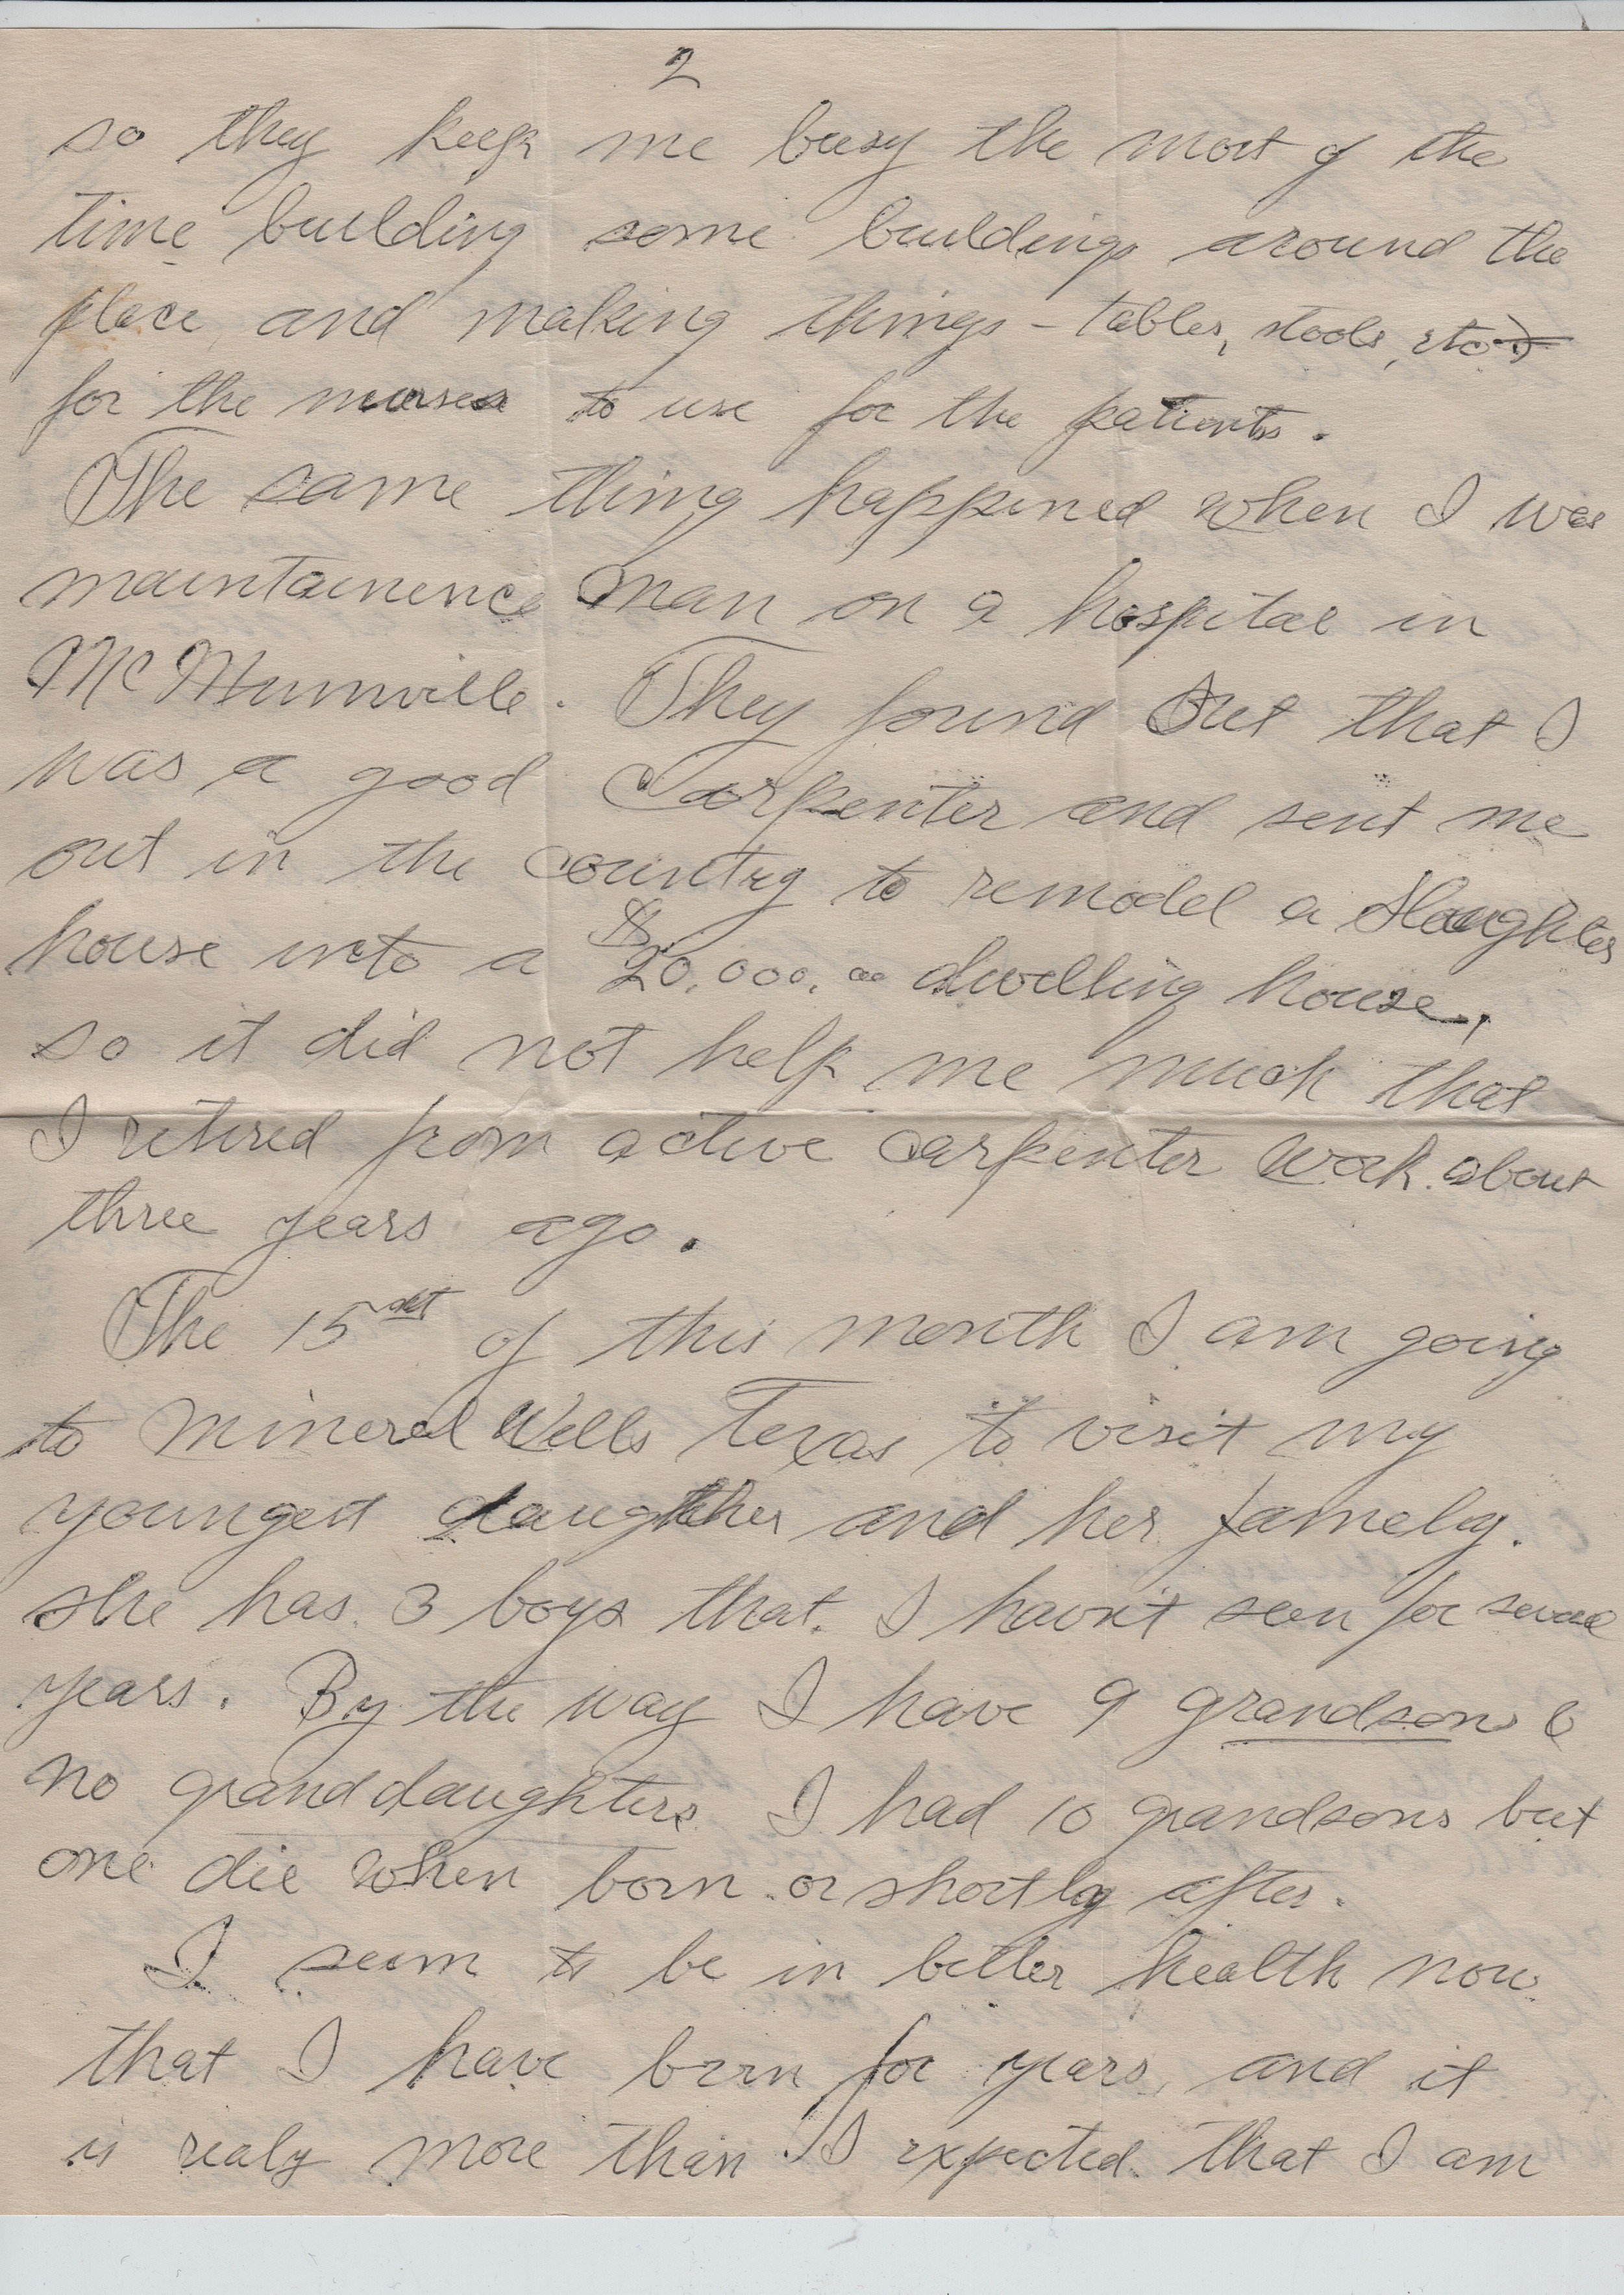 2
so they keep me busy the most of the
time building some buildings around the
place and making things - tables, stools, etc)
for the nurses to use for the patients.
The same thing happened when I was
maintainence man on a hospital in
McMinnville. They found out that I
was a good Carpenter and sent me
out in the country to remodel a Slaughter
house into a $20,000.00 dwelling house,
so it did not help me much that
I retired from active carpenter work about
three years ago.
The 15 of this month I am going
to Mineral Wells Texas to visit my
youngest daughter and her famely.
she has 3 boys that I havn't seen for several
years. By the way I have 9 grandsons &
no granddaughters I had 10 grandsons but
one die when born or shortly after.
I seem to be in better health now
that I have been for years, and it
is realy more than I expected that I am